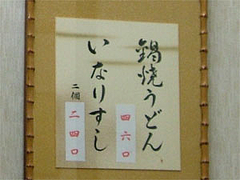 鍋焼うどん
四六〇
いなりすし
二個
二四〇